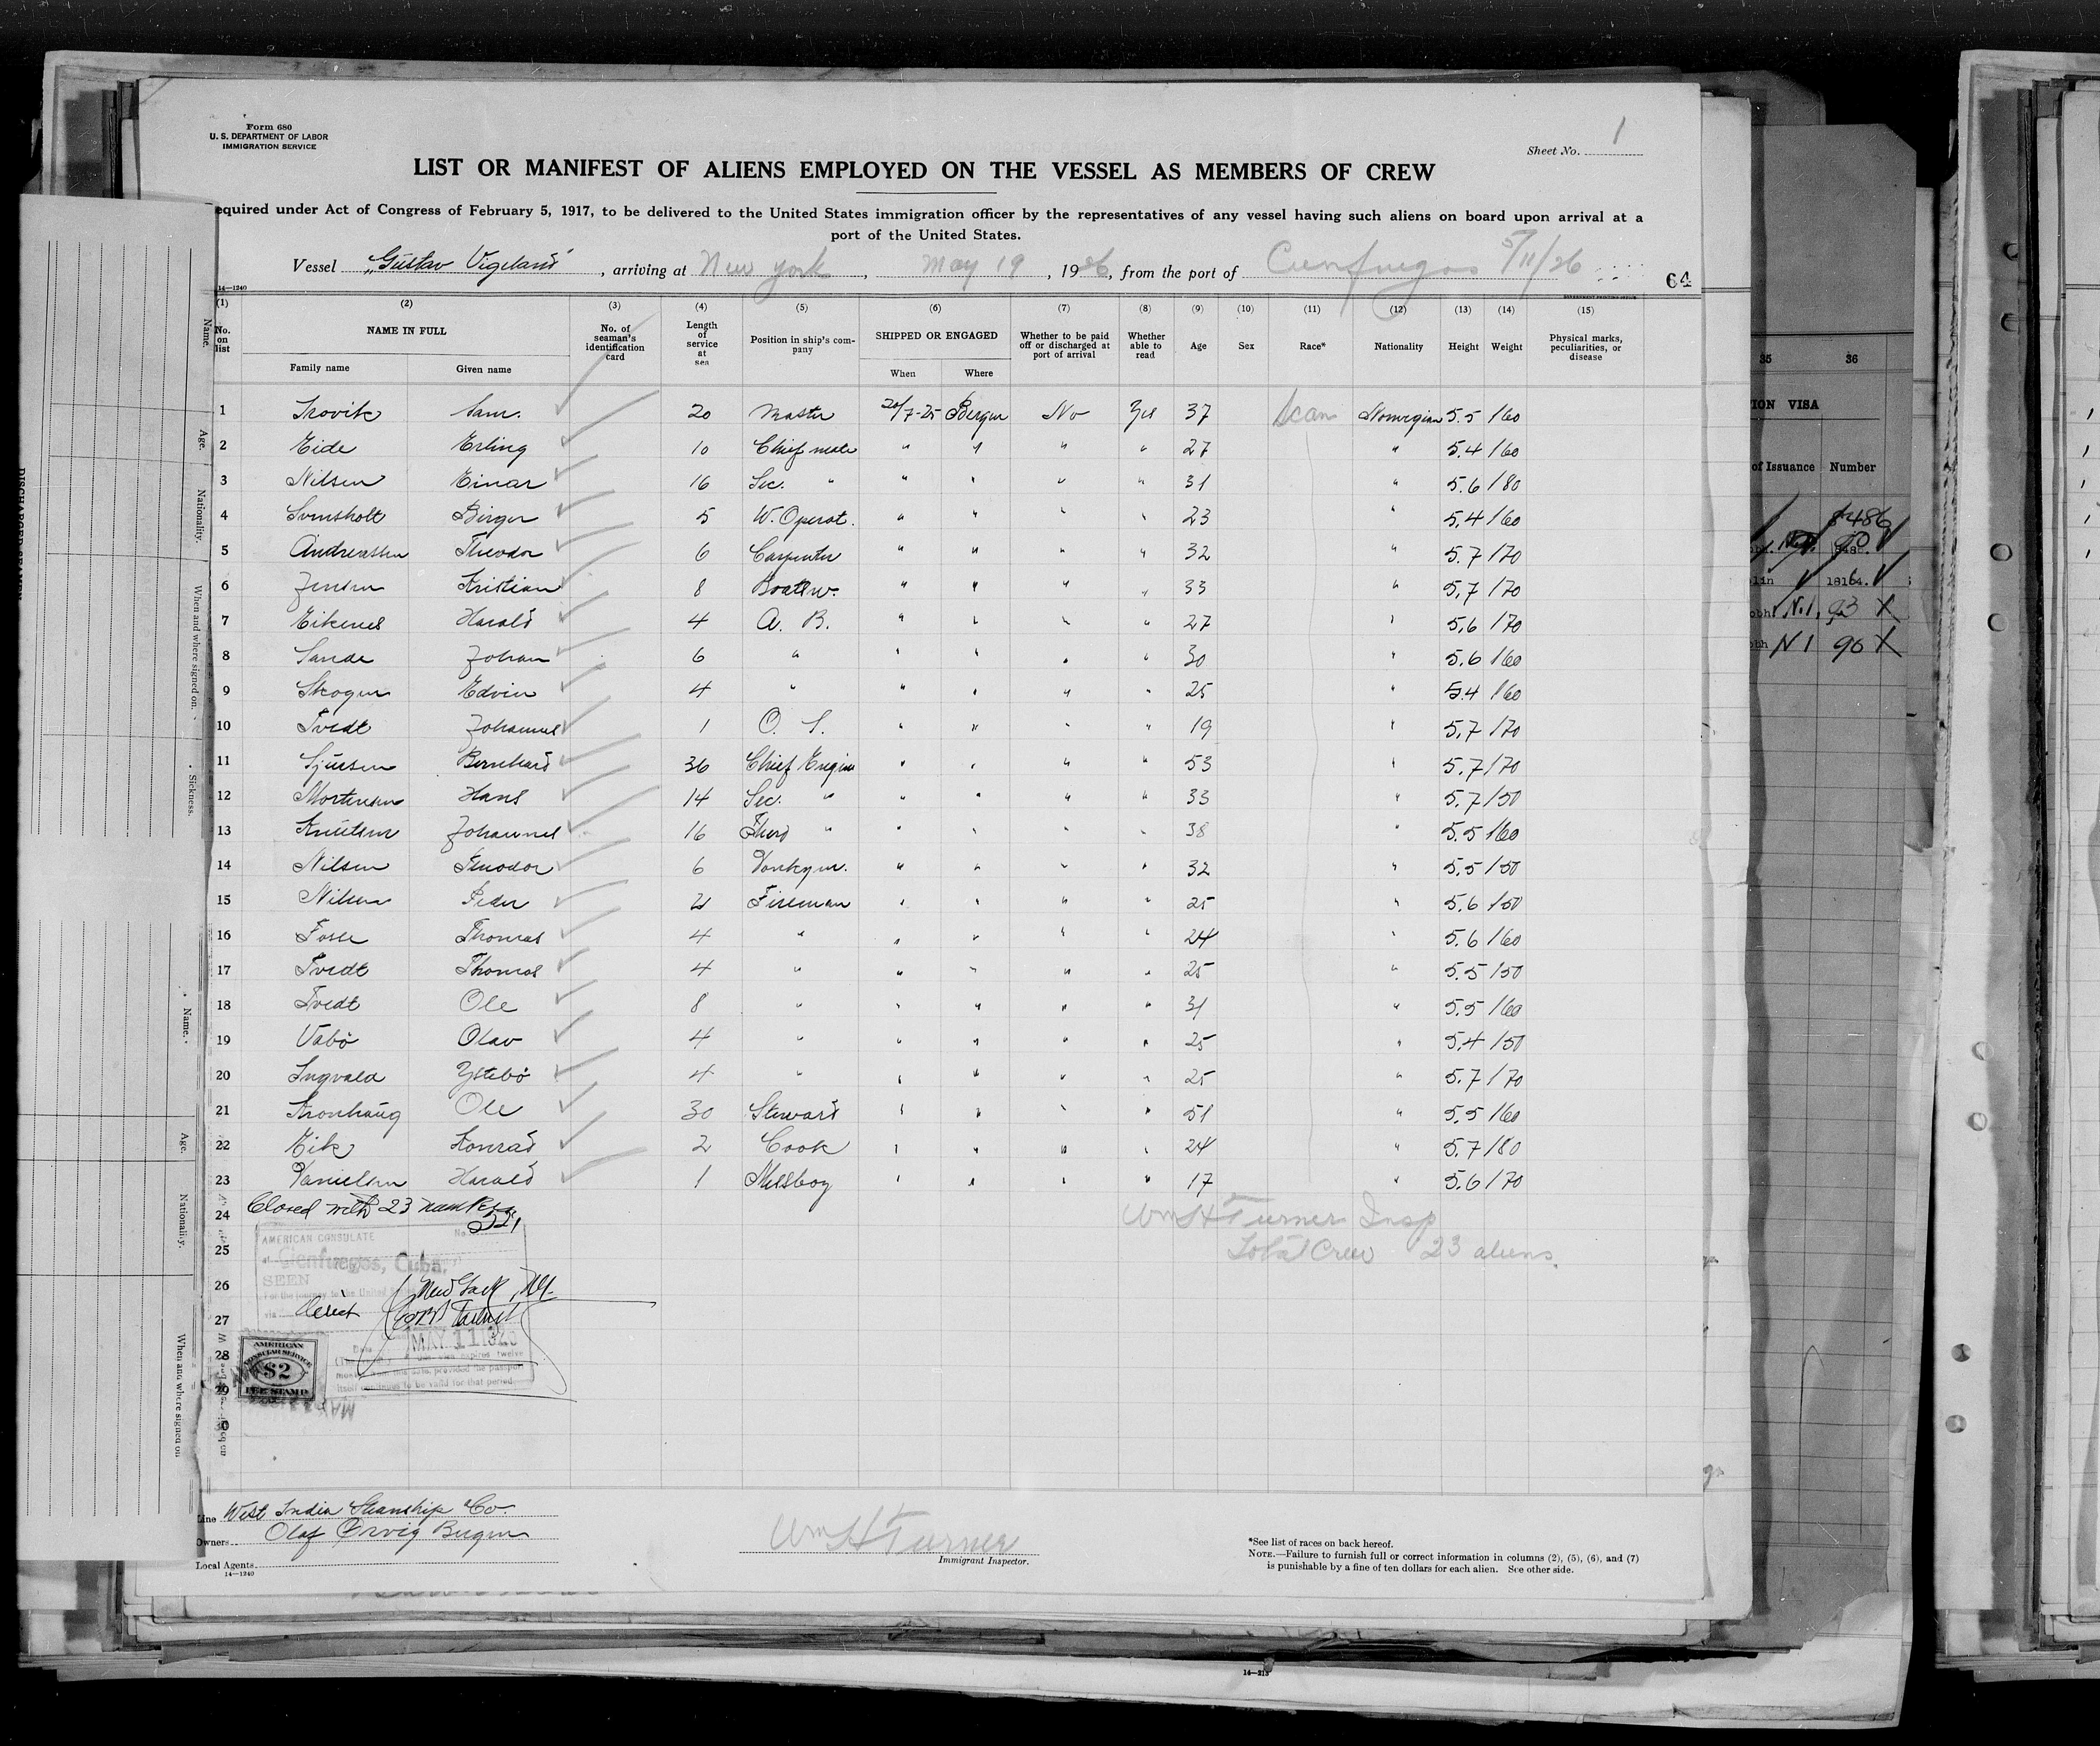 Form 680
U. S. DEPARTMENT OF LABOR
IMMIGRATION SERVICE
Sheet No. 1
LIST OR MANIFEST OF ALIENS EMPLOYED ON THE VESSEL AS MEMBERS OF CREW
equired under Act of Congress of February 5, 1917, to be delivered to the United States immigration officer by the representatives of any vessel having such aliens on board upon arrival at a
port of the United States.
Vessel „Gustav Vigeland", arriving at New York, May 19, 1926, from the port of Cienfuegos 5/11/26
14—1240
64
(1) (2) (3) (4) (5) (6) (7) (8) (9) (10) (11) (12) (13) (14) (15)
No. on list NAME IN FULL Family name Given name No. of seaman's identification card Length of service at sea Position in ship's company SHIPPED OR ENGAGED When Where Whether to be paid off or discharged at port of arrival Whether able to read Age Sex Race* Nationality Height Weight Physical marks, peculiarities, or disease
1 Trovik Sam. 20 Master 20/7-25 Bergen No Yes 37 Scan Norwegian 5.5 160
2 Eide Erling 10 Chief mate " " " " 27 " 5.4 160
3 Nilsen Einar 16 Sec. " " " " " 31 " 5.6 180
4 Svensholt Birger 5 W. Operat. " " " " 23 " 5.4 160
5 Andreassen Theodor 6 Carpenter " " " " 32 " 5.7 170
6 Jensen Kristian 8 Boatsw. " " " " 33 " 5.7 170
7 Eikenes Harald 4 A. B. " " " " 27 " 5.6 170
8 Sande Johan 6 " " " " " 30 " 5.6 160
9 Skogen Edvin 4 " " " " " 25 " 5.4 160
10 Tvedt Johannes 1 O. S. " " " " 19 " 5.7 170
11 Sjursen Bernhard 36 Chief Engin " " " " 53 " 5.7 170
12 Mortensen Hans 14 Sec. " " " " " 33 " 5.7 150
13 Knutsen Johannes 16 Third " " " " " 38 " 5.5 160
14 Nilsen Theodor 6 Donkym. " " " " 32 " 5.5 150
15 Nilsen Peder 2 Fireman " " " " 25 " 5.6 150
16 Fosse Thomas 4 " " " " " 24 " 5.6 160
17 Tvedt Thomas 4 " " " " " 25 " 5.5 150
18 Tvedt Ole 8 " " " " " 31 " 5.5 160
19 Vabö Olav 4 " " " " " 25 " 5.4 150
20 Ingvald Ystebö 4 " " " " " 25 " 5.7 170
21 Kronhaug Ole 30 Steward " " " " 51 " 5.5 160
22 Eik Konrad 2 Cook " " " " 24 " 5.7 180
23 Danielsen Harald 1 Messboy " " " " 17 " 5.6 170
Closed with 23 names
24 Wm H Turner Insp
25 Total Crew 23 aliens.
26
27
28
29
AMERICAN CONSULATE No. 521
at Cienfuegos, Cuba.
SEEN
For the journey to the United
via Direct New York, N.Y.
Date MAY 11
expires twelve
provided the passport
continues to be valid for that period
AMERICAN
CONSULAR SERVICE
$2
FEE STAMP
Line West India Steamship Co.
Owners Olaf Ørvig Bergen
Local Agents
14—1240
Wm H Turner
Immigrant Inspector.
*See list of races on back hereof.
NOTE.—Failure to furnish full or correct information in columns (2), (5), (6), and (7)
is punishable by a fine of ten dollars for each alien. See other side.
14—213
Name.
Age.
Nationality.
When and where signed on.
Sickness.
Name.
Age.
Nationality.
When and where signed on
35 36
ION VISA
of Issuance Number
8486
18164.
N.1, 93 X
N 1 90 X